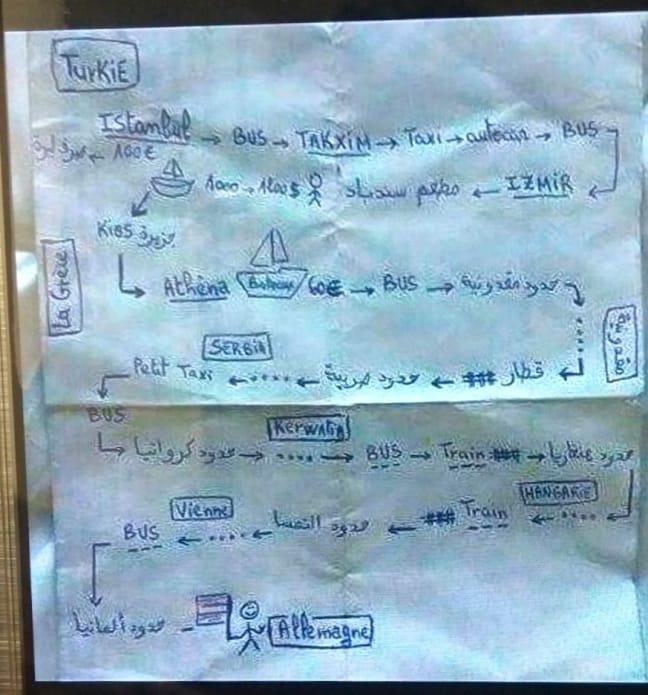 TurkiE
IStambul → BUS → TAKXiM → Taxi → autocar → BUS
100€ ←
IZMiR ← مطعم سندباد 1000 → 1200$
Kios جزيرة
La Grèce
Athèna 60€ → BUS → حدود مقدونية
مقدونية
SERBIA
قطار ← حدود صربية ← .... ← Petit Taxi
BUS
KerwaTia
حدود كرواتيا → .... → BUS → Train → حدود هنغاريا
HANGARIE
Vienne
.... ← Train ← حدود النمسا ← .... ← BUS
حدود ألمانيا
Allemagne